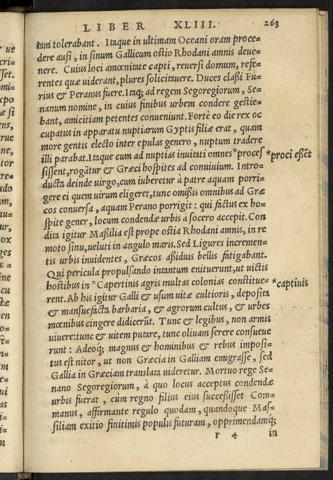 LIBER XLIII. 263
tam tolerabant. Itaque in ultimam Oceani oram proce=
dere ausi, in sinum Gallicum ostio Rhodani amnis deue=
nere. Cuius loci amœnitate capti, reuersi domum, refe=
rentes quæ uiderant, plures solicituere. Duces classi Fu=
rius & Peranus fuere. Itaq; ad regem Segoregiorum, Se=
nanum nomine, in cuius finibus urbem condere gestie=
bant, amicitiam petentes conueniunt. Forte eo die rex oc
cupatus in apparatu nuptiarum Gyptis filiæ erat, quam
more gentis electo inter epulas genero, nuptum tradere
illi parabat. Itaque cum ad nuptias inuitati omnes *procef *proci eſſet
sissent, rogātur & Græci hospites ad conuiuium. Intro=
ducta deinde uirgo, cum iuberetur à patre aquam porri=
gere ei quem uirum eligeret, tunc omißis omnibus ad Græ
cos conuersa, aquam Perano porrigit: qui factus ex ho=
spite gener, locum condendæ urbis à socero accepit. Con
dita igitur Maßilia est prope ostia Rhodani amnis, in re
moto sinu, ueluti in angulo maris. Sed Ligures incremen=
tis urbis inuidentes, Græcos aßiduis bellis fatigabant.
Qui pericula propulsando intantum enituerunt, ut uictis
hostibus in *Capertinis agris multas colonias constitue= *captiuis
rent. Ab his igitur Galli & usum uitæ cultioris, depositа
& mansuefacta barbaria, & agrorum cultus, & urbes
mœnibus cingere didicerūt. Tunc & legibus, non armis
uiuere: tunc & uitem putare, tunc oliuam serere consueue
runt: Adeoq; magnus & hominibus & rebus imposi=
tus est nitor, ut non Græcia in Galliam emigrasse, sed
Gallia in Græciam translata uideretur. Mortuo rege Se=
nano Segoregiorum, à quo locus acceptus condendæ
urbis fuerat, cùm regno filius eius successisset Com=
manus, affirmante regulo quodam, quandoque Mas=
siliam exitio finitimis populis futuram, opprimendamq;
r 4 in